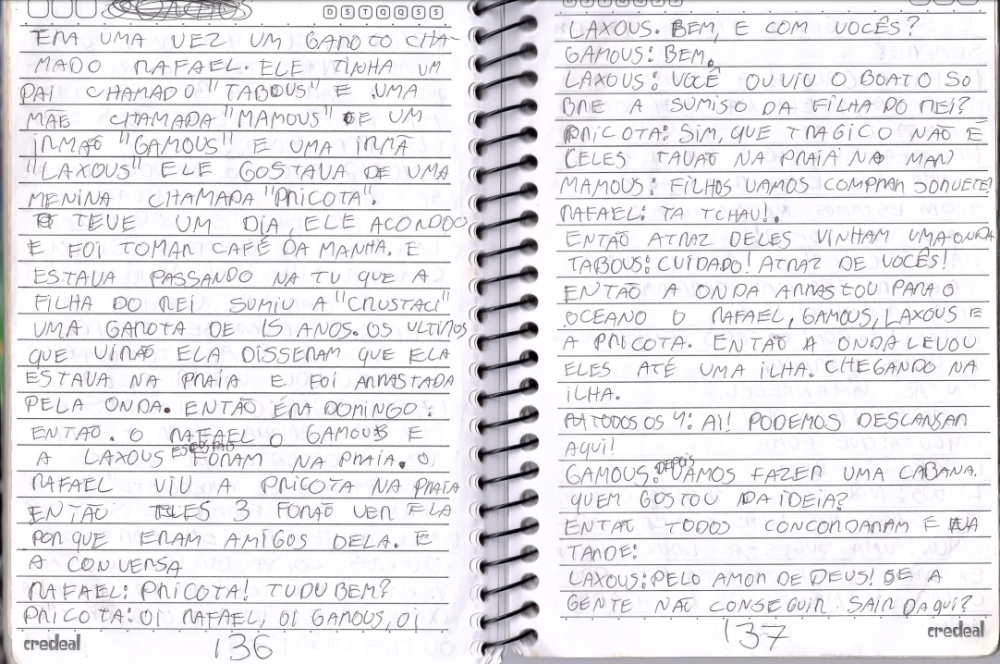 D S T Q Q S S
ERA UMA VEZ UM GAROTO CHA-
MADO RAFAEL. ELE TINHA UM
PAI CHAMADO "TABOUS" E UMA
MÃE CHAMADA "MAMOUS" E UM
IRMÃO "GAMOUS" E UMA IRMÃ
"LAXOUS" ELE GOSTAVA DE UMA
MENINA CHAMADA "PRICOTA".
TEVE UM DIA, ELE ACORDOU
E FOI TOMAR CAFÉ DA MANHA. E
ESTAVA PASSANDO NA TV QUE A
FILHA DO REI SUMIU A "CRUSTACI"
UMA GAROTA DE 15 ANOS. OS ULTIMOS
QUE VIRÃO ELA DISSERAM QUE ELA
ESTAVA NA PRAIA E FOI ARRASTADA
PELA ONDA. ENTÃO ÉRA DOMINGO.
ENTÃO. O RAFAEL O GAMOUS E
A LAXOUS FORAM NA PRAIA. O
RAFAEL VIU A PRICOTA NA PRAIA
ENTÃO ELES 3 FORÃO VER ELA
PORQUE ERAM AMIGOS DELA. E
A CONVERSA
RAFAEL: PRICOTA! TUDU BEM?
PRICOTA: OI RAFAEL, OI GAMOUS, OI
credeal
136
LAXOUS. BEM, E COM VOCÊS?
GAMOUS: BEM.
LAXOUS: VOCÊ OUVIU O BOATO SO
BRE A SUMISO DA FILHA DO REI?
PRICOTA: SIM, QUE TRAGICO NÃO É
CELES TAVÃO NA PRAIA NO MAR?
MAMOUS: FILHOS VAMOS COMPRAR SORVETE!
RAFAEL: TA TCHAU!.
ENTÃO ATRAZ DELES VINHAM UMA ONDA
TABOUS: CUIDADO! ATRAZ DE VOCÊS!
ENTÃO A ONDA ARRASTOU PARA O
OCEANO O RAFAEL, GAMOUS, LAXOUS E
A PRICOTA. ENTÃO A ONDA LEVOU
ELES ATÉ UMA ILHA. CHEGANDO NA
ILHA.
TODOS OS 4: AI! PODEMOS DESCANSAR
AQUI!
GAMOUS: DEPOIS VAMOS FAZER UMA CABANA.
QUEM GOSTOU DA IDEIA?
ENTÃO TODOS CONCORDARAM E A
TARDE:
LAXOUS: PELO AMOR DE DEUS! SE A
GENTE NÃO CONSEGUIR SAIR DAQUI?
137
credeal